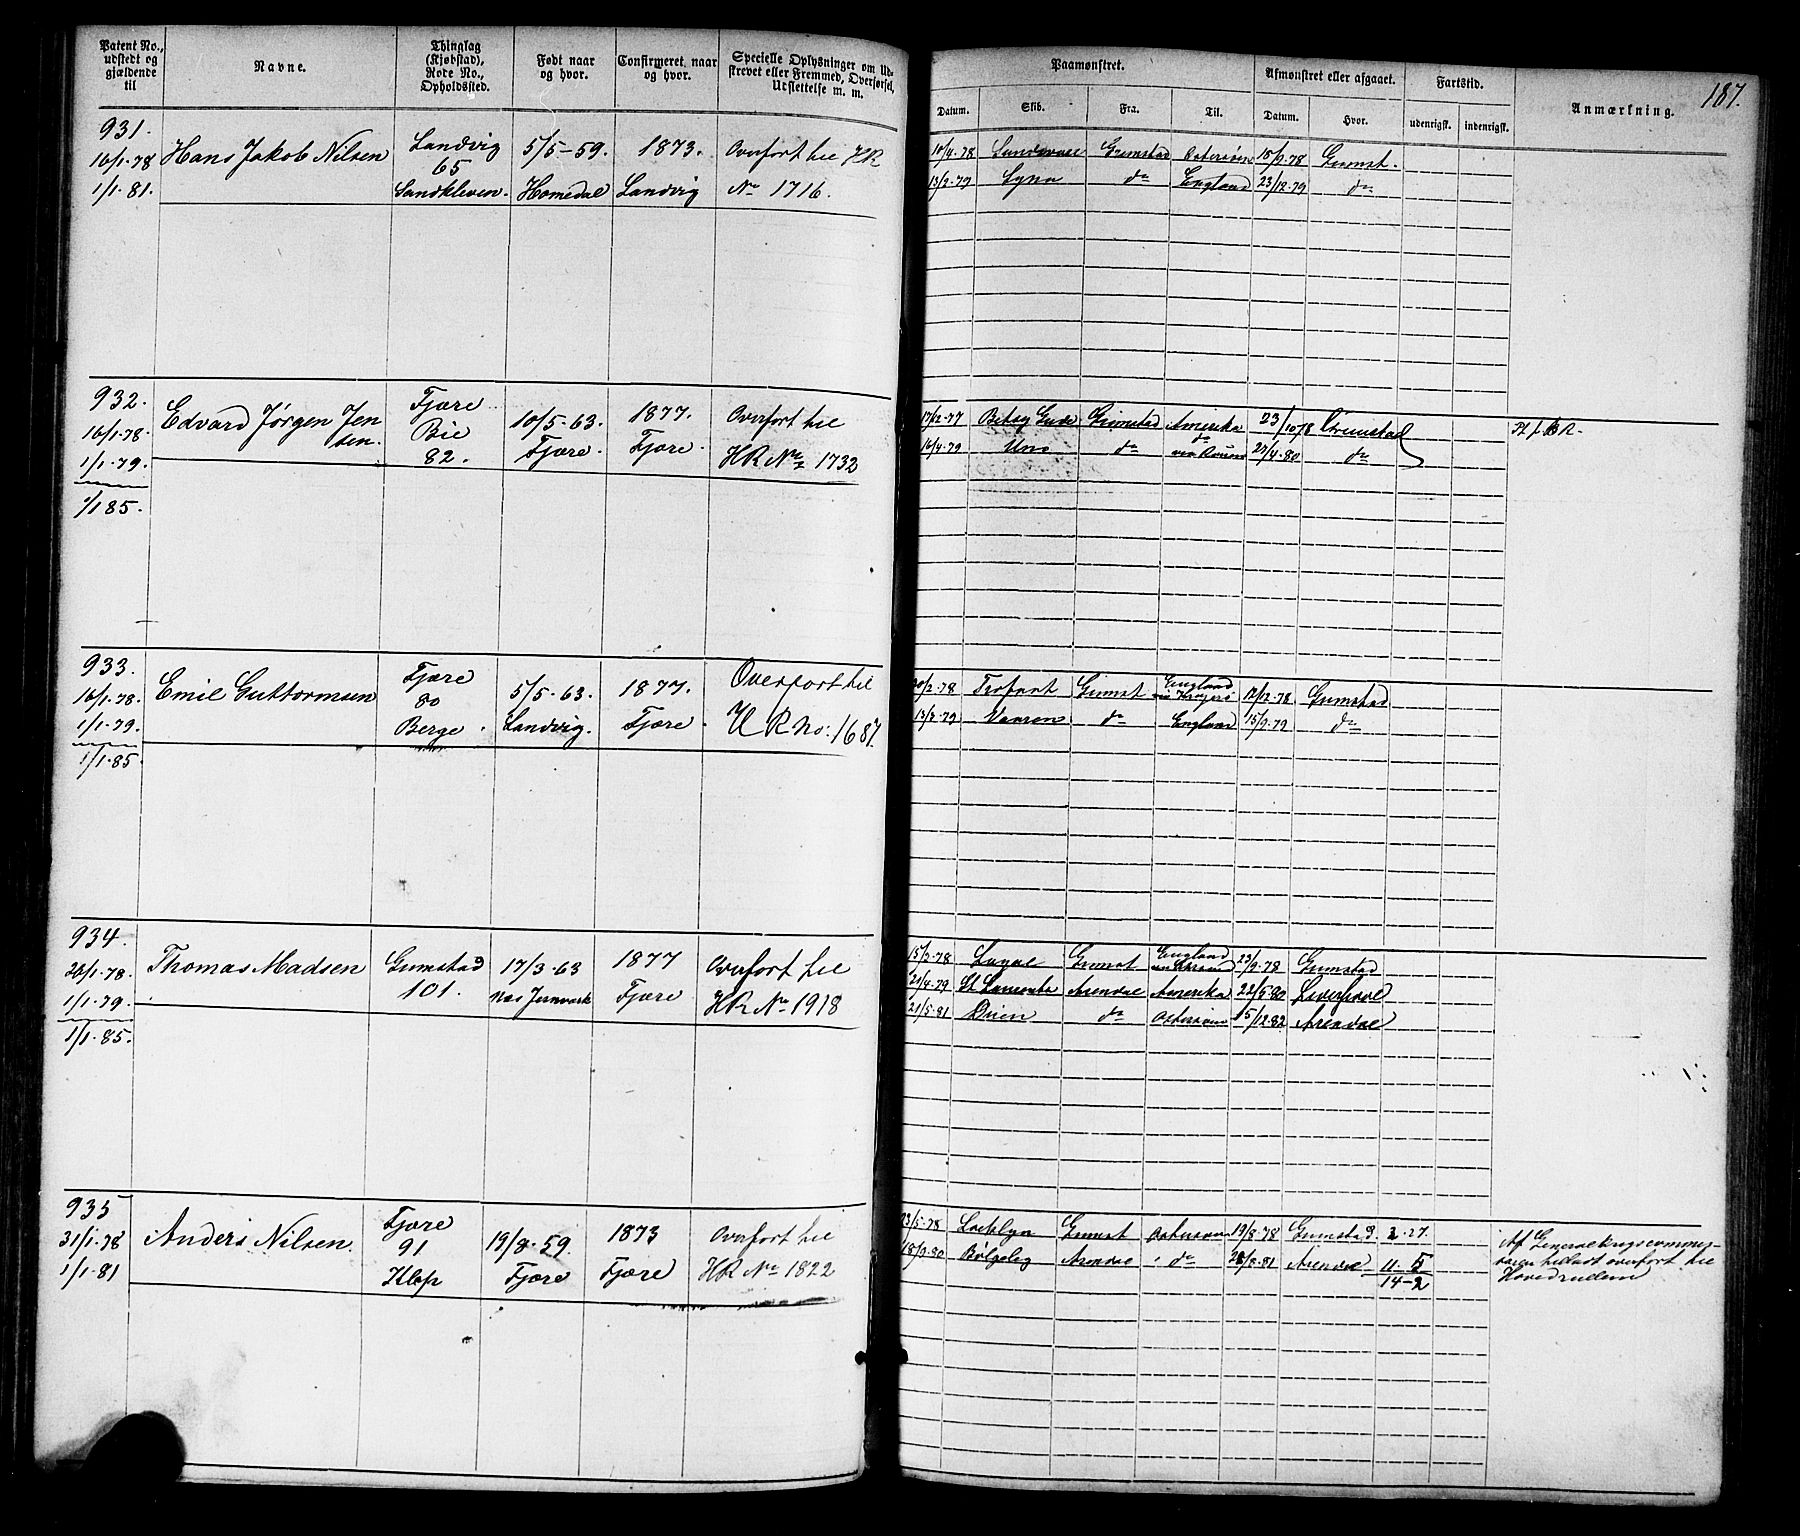 Patent No., udstedt og gjældende til
Navne.
Thinglag (Kjøbstad), Rode No., Opholdssted.
Født naar og hvor.
Confirmeret, naar og hvor.
Specielle Oplysninger om Udstrevet eller Fremmed, Overførsel, Udslettelse m. m.
Paamønstret.
Afmønstret eller afgaaet.
Fartstid.
Anmærkning.
187.
Datum.
Skib.
Fra.
Til.
Datum.
Hvor.
udenrigst.
indenrigst.
931.
16/1-78
1/1-81.
Hans Jakob Nilsen
Landvig
65
Sandkleven.
5/5-59.
Homedal
1873.
Landvig
Overført til HR
No 1716.
10/4-78 Grimstad Østersøen 15/9-78 Grimst.
13/2-79 Lyna do England 23/12-79 do
932.
16/1-78.
1/1-79.
1/1 85.
Edvard Jørgen Jen
sen.
Fjære
Bie
82.
10/5-63.
Fjære.
1877.
Fjære.
Overført til
HR No 1732
17/12-77 Betsy Gude Grimstad Amerika 23/10 78 Grimstad
16/4-79 Uno do do 27/4-80 do
933.
16/1-78.
1/1-79.
1/1-85.
Emil Guttormsen
Fjære
80
Berge.
5/5-63.
Landvig.
1877.
Fjære.
Overført til
H R No: 1687.
20/2-78 Trofast Grimst England via Kragerø 12/12-78 Grimstad
13/3-79 Vaaren do England 15/9-79 do
934.
26/1-78.
1/1-79.
1/1-85.
Thomas Madsen
Grimstad
101.
17/3-63
Næs Jernværk
1877
Fjære
Overført til
HR No 1918
15/2-78 Grimst England 23/9-78 Grimstad
21/4-79 St Arendal Amerika 22/5-80 Liverpool
21/5-81 do Østersøen 15/12-82 Arendal
935
31/1-78
1/1-81
Anders Nilsen.
Fjære
91
Klep
19/8-59.
Fjære
1873
Fjære
Overført til
HR No 1822
23/5-78 Grimst Østersøen 19/8-78 Grimstad 2-27.
18/9-80 Arendal do 28/8-81 Arendal 11-5
14-2
Af
tilladt overført til
Hovedrullen